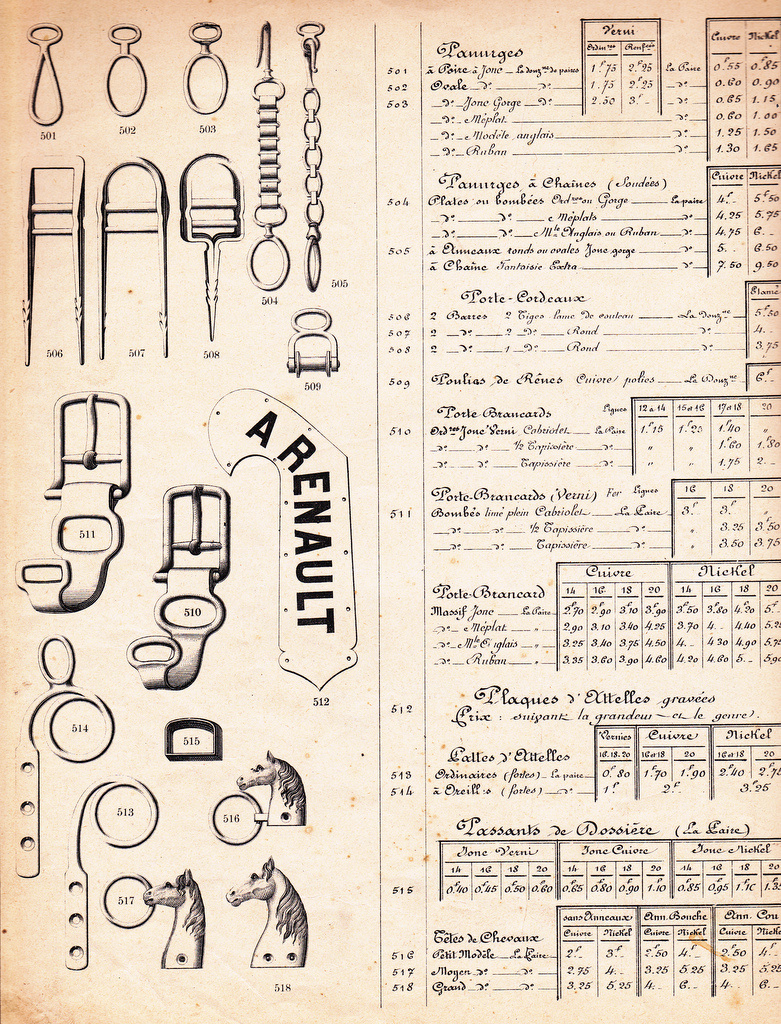 501
502
503
504
505
506
507
508
509
A RENAULT
511
510
512
514
515
513
516
517
518
Verni
Cuivre Nickel
Panurges
501 à Poire à Jonc — La douz.ne de paires 1.f75 2.f25 La Paire 0.f55 0.f85
502 Ovale — d.o — d.o — 1.75 2.25 — d.o — 0.60 0.90
503 — d.o — Jonc Gorge — d.o — 2.50 3.- — d.o — 0.65 1.15
— d.o — Méplat — d.o — 0.60 1.00
— d.o — Modèle anglais — d.o — 1.25 1.50
— d.o — Ruban — d.o — 1.30 1.65
Panurges à Chaînes (Soudées) Cuivre Nickel
504 Plates ou bombées Ord.res ou Gorge — La paire 4.f- 5.f50
— d.o — d.o — Méplats — d.o — 4.25 5.75
— d.o — d.o — M.le Anglais ou Ruban — d.o — 4.75 6.-
505 à Anneaux ronds ou ovales Jonc gorge — d.o — 5.- 6.50
à Chaîne Fantaisie Extra — d.o — 7.50 9.50
Porte-Cordeaux Etamé
506 2 Barres 2 Tiges lame de couteau — La Douz.ne 5.f50
507 2 — d.o — 2 — d.o — Rond — d.o — 4.-
508 2 — d.o — 1 — d.o — Rond — d.o — 3.75
509 Poulies de Rênes Cuivre polies — La Douz.ne 6.f-
Porte Brancards Lignes 12 à 14 15 et 16 17 et 18 20
510 Ord.res Jonc Verni Cabriolet — La Paire 1.f15 1.f25 1.f40 "
— d.o — d.o — 1/2 Tapissière — d.o — " " 1.60 1.80
— d.o — d.o — Tapissière — d.o — " " 1.75 2.-
Porte-Brancards (Verni) Fer Lignes 16 18 20
511 Bombés limé plein Cabriolet — La Paire 3.f 3.f "
— d.o — d.o — 1/2 Tapissière — d.o — " 3.25 3.50
— d.o — d.o — Tapissière — d.o — " 3.50 3.75
Cuivre Nickel
Porte-Brancard 14 16 18 20 14 16 18 20
Massif Jonc — La Paire 2.f70 2.f90 3.f10 3.f90 3.f50 3.f80 4.f20 5.f
— d.o — Méplat — " 2.90 3.10 3.40 4.25 3.70 4.- 4.40
— d.o — M.le Anglais — " 3.25 3.40 3.75 4.50 4.- 4.30 4.90
— d.o — Ruban — " 3.35 3.60 3.90 4.60 4.20 4.60 5.-
512 Plaques d'Attelles gravées
Prix : suivant la grandeur et le genre.
Vernies Cuivre Nickel
Pattes d'Attelles 16.18.20 16 et 18 20 16 et 18 20
513 Ordinaires (fortes) — La paire 0.f80 1.f70 1.f90 2.f40 2.f7
514 à Oreilles (fortes) — d.o — 1.f 2.f- 3.f25
Passants de Dossière (La Paire)
Jonc Verni Jonc Cuivre Jonc Nickel
14 16 18 20 14 16 18 20 14 16 18 20
515 0.f40 0.f45 0.f50 0.f60 0.f65 0.f80 0.f90 1.f10 0.f85 0.f95 1.f10
sans Anneaux Ann. Bouche Ann. Cou
Têtes de Chevaux Cuivre Nickel Cuivre Nickel Cuivre Nickel
516 Petit Modèle — La Paire 2.f- 3.f- 2.f50 4.f- 2.f50 4.f-
517 Moyen — d.o — d.o — 2.75 4.- 3.25 5.25 3.25 5.25
518 Grand — d.o — d.o — 3.25 5.25 4.- 6.- 4.- 6.-